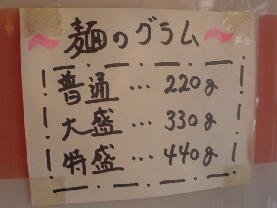 麺のグラム
普通…220g
大盛…330g
特盛…440g